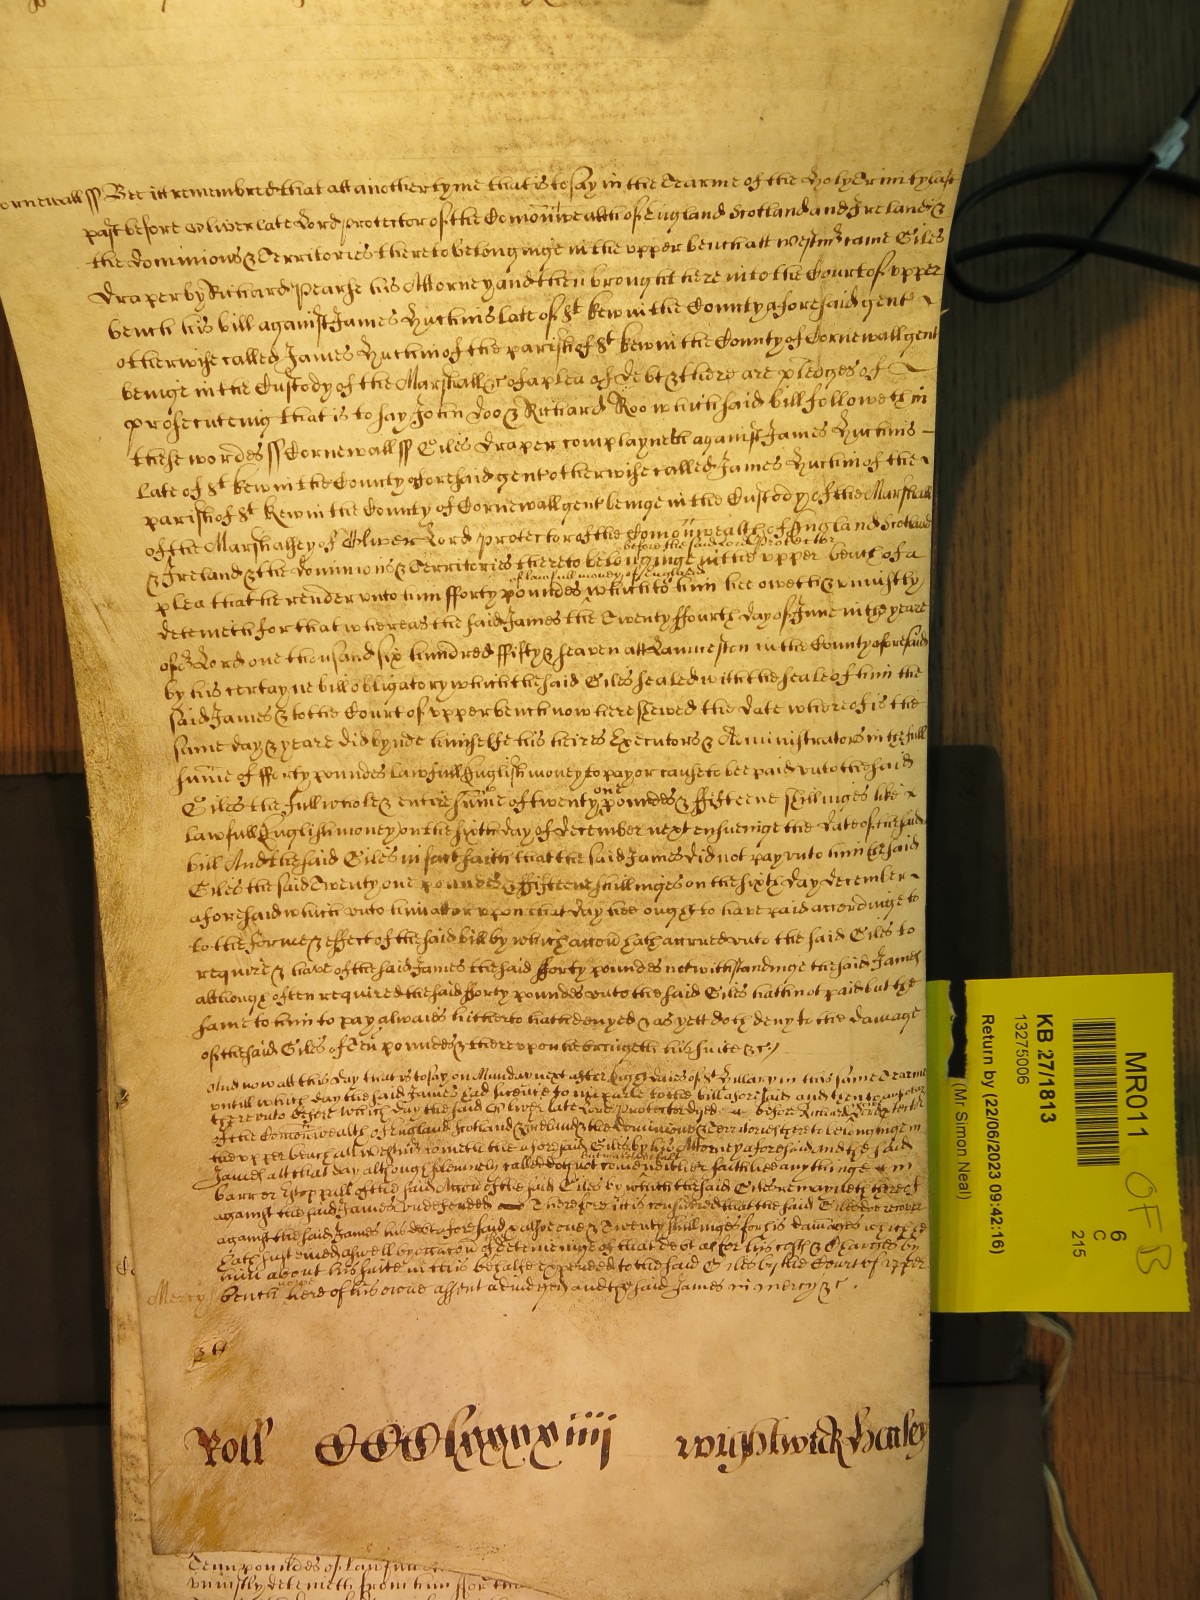 ornewall ss Bee itt remembred that att another tyme that is to say in the Tearme of the Holy Trinity last
past before Oliver late Lord protector of the Comonwealth of England Scotland and Ireland &
the dominions & Territories thereto belonginge in the upper bench att Westmr came Giles
Draper by Richard Pearse his Attorney and then brought here into the Court of upper
bench his bill against James Hutchins late of St Kew in the County aforesaid gent
otherwise called James Hutchin of the parish of St Kew in the County of Cornewall gent
beinge in the Custody of the Marshall &c of a plea of debt & there are pledges of
prosecuteing that is to say John Doo & Richard Roo which said bill followeth in
these wordes ss Cornewall ss Giles Draper complayneth against James Hutchins
late of St Kew in the County aforesaid gent otherwise called James Hutchin of the
parish of St Kew in the County of Cornewall gent beinge in the Custody of the Marshall
of the Marshalsey of Oliver Lord protector of the Comonwealth of England Scotland
before the said Lord protector
& Ireland & the dominions & Territories thereto belonginge in the upper bench of a
of lawfull money of England
plea that he render unto him fforty poundes which to him hee oweth & uniustly
deteineth for that whereas the said James the Twenty ffourth day of June in the yeare
of or Lord one thousand six hundred ffifty & seaven att Launceston in the County aforesaid
by his certayne bill obligatory which the said Giles sealed with the seale of him the
said James & to the Court of upper bench now here shewed the date whereof is the
same day & yeare did bynde himselfe his heires Executors & Administrators in the full
summe of fforty poundes lawfull English money to pay or cause to bee paid unto the said
Giles the full whole & entire summe of twenty one poundes & ffifteene shillinges like
lawfull English money on the sixth day of December next ensueinge the date of the said
bill And the said Giles in fact saith that the said James did not pay unto him the said
Giles the said Twenty one poundes & ffifteene shillinges on the sixth day december
aforesaid which unto him att or upon that day hee ought to have paid accordinge to
to the forme & effect of the said bill by which accon hath accrued unto the said Giles to
require & have of the said James the said fforty poundes notwithstandinge the said James
although often required the said fforty poundes unto the said Giles hath not paid but the
same to him to pay alwaies hitherto hath denyed & as yett doth deny to the damage
of the said Giles of Ten poundes & thereupon he bringeth his suite &c
And now att this day that is to say on Munday next after Eight daies of St Hillary in this same Tearme
untill which day the said James had licence to imparle to the bill aforesaid and then to answer
thereunto before which day the said Oliver late Lord Protector dyed before Richard Lord Protector
of the Comonwealth of England Scotland & Ireland & the Dominions & Territories thereto belonginge in
the upper bench att Westmr cometh the aforesaid Giles by his Attorney aforesaid and the said
James att that day although solemnely called doth not come neither saith hee any thinge in
barr or stoppall of the said Accon of the said Giles by which the said Giles remayneth thereof
against the said James undefended Therefore it is considered that the said Giles doe recover
against the said James his debt aforesaid & alsoe one & Twenty shillinges for his damages which he
hath susteined aswell by occacon of deteineinge of that debt as for his costs & Charges by
him about his suite in this behalfe expended to the said Giles by the Court of upper
Mercy bench nowe here of his owne assent adiudged and the said James in mercy &c.
Roll CCClxxxxiiij Wightwick & Henley
Tenn poundes of lawfull
uniustly deteineth from him ffor tha
MR011
6
C
215
KB 27/1813
13275006
Return by (22/06/2023 09:42:16)
(Mr Simon Neal)
OF B